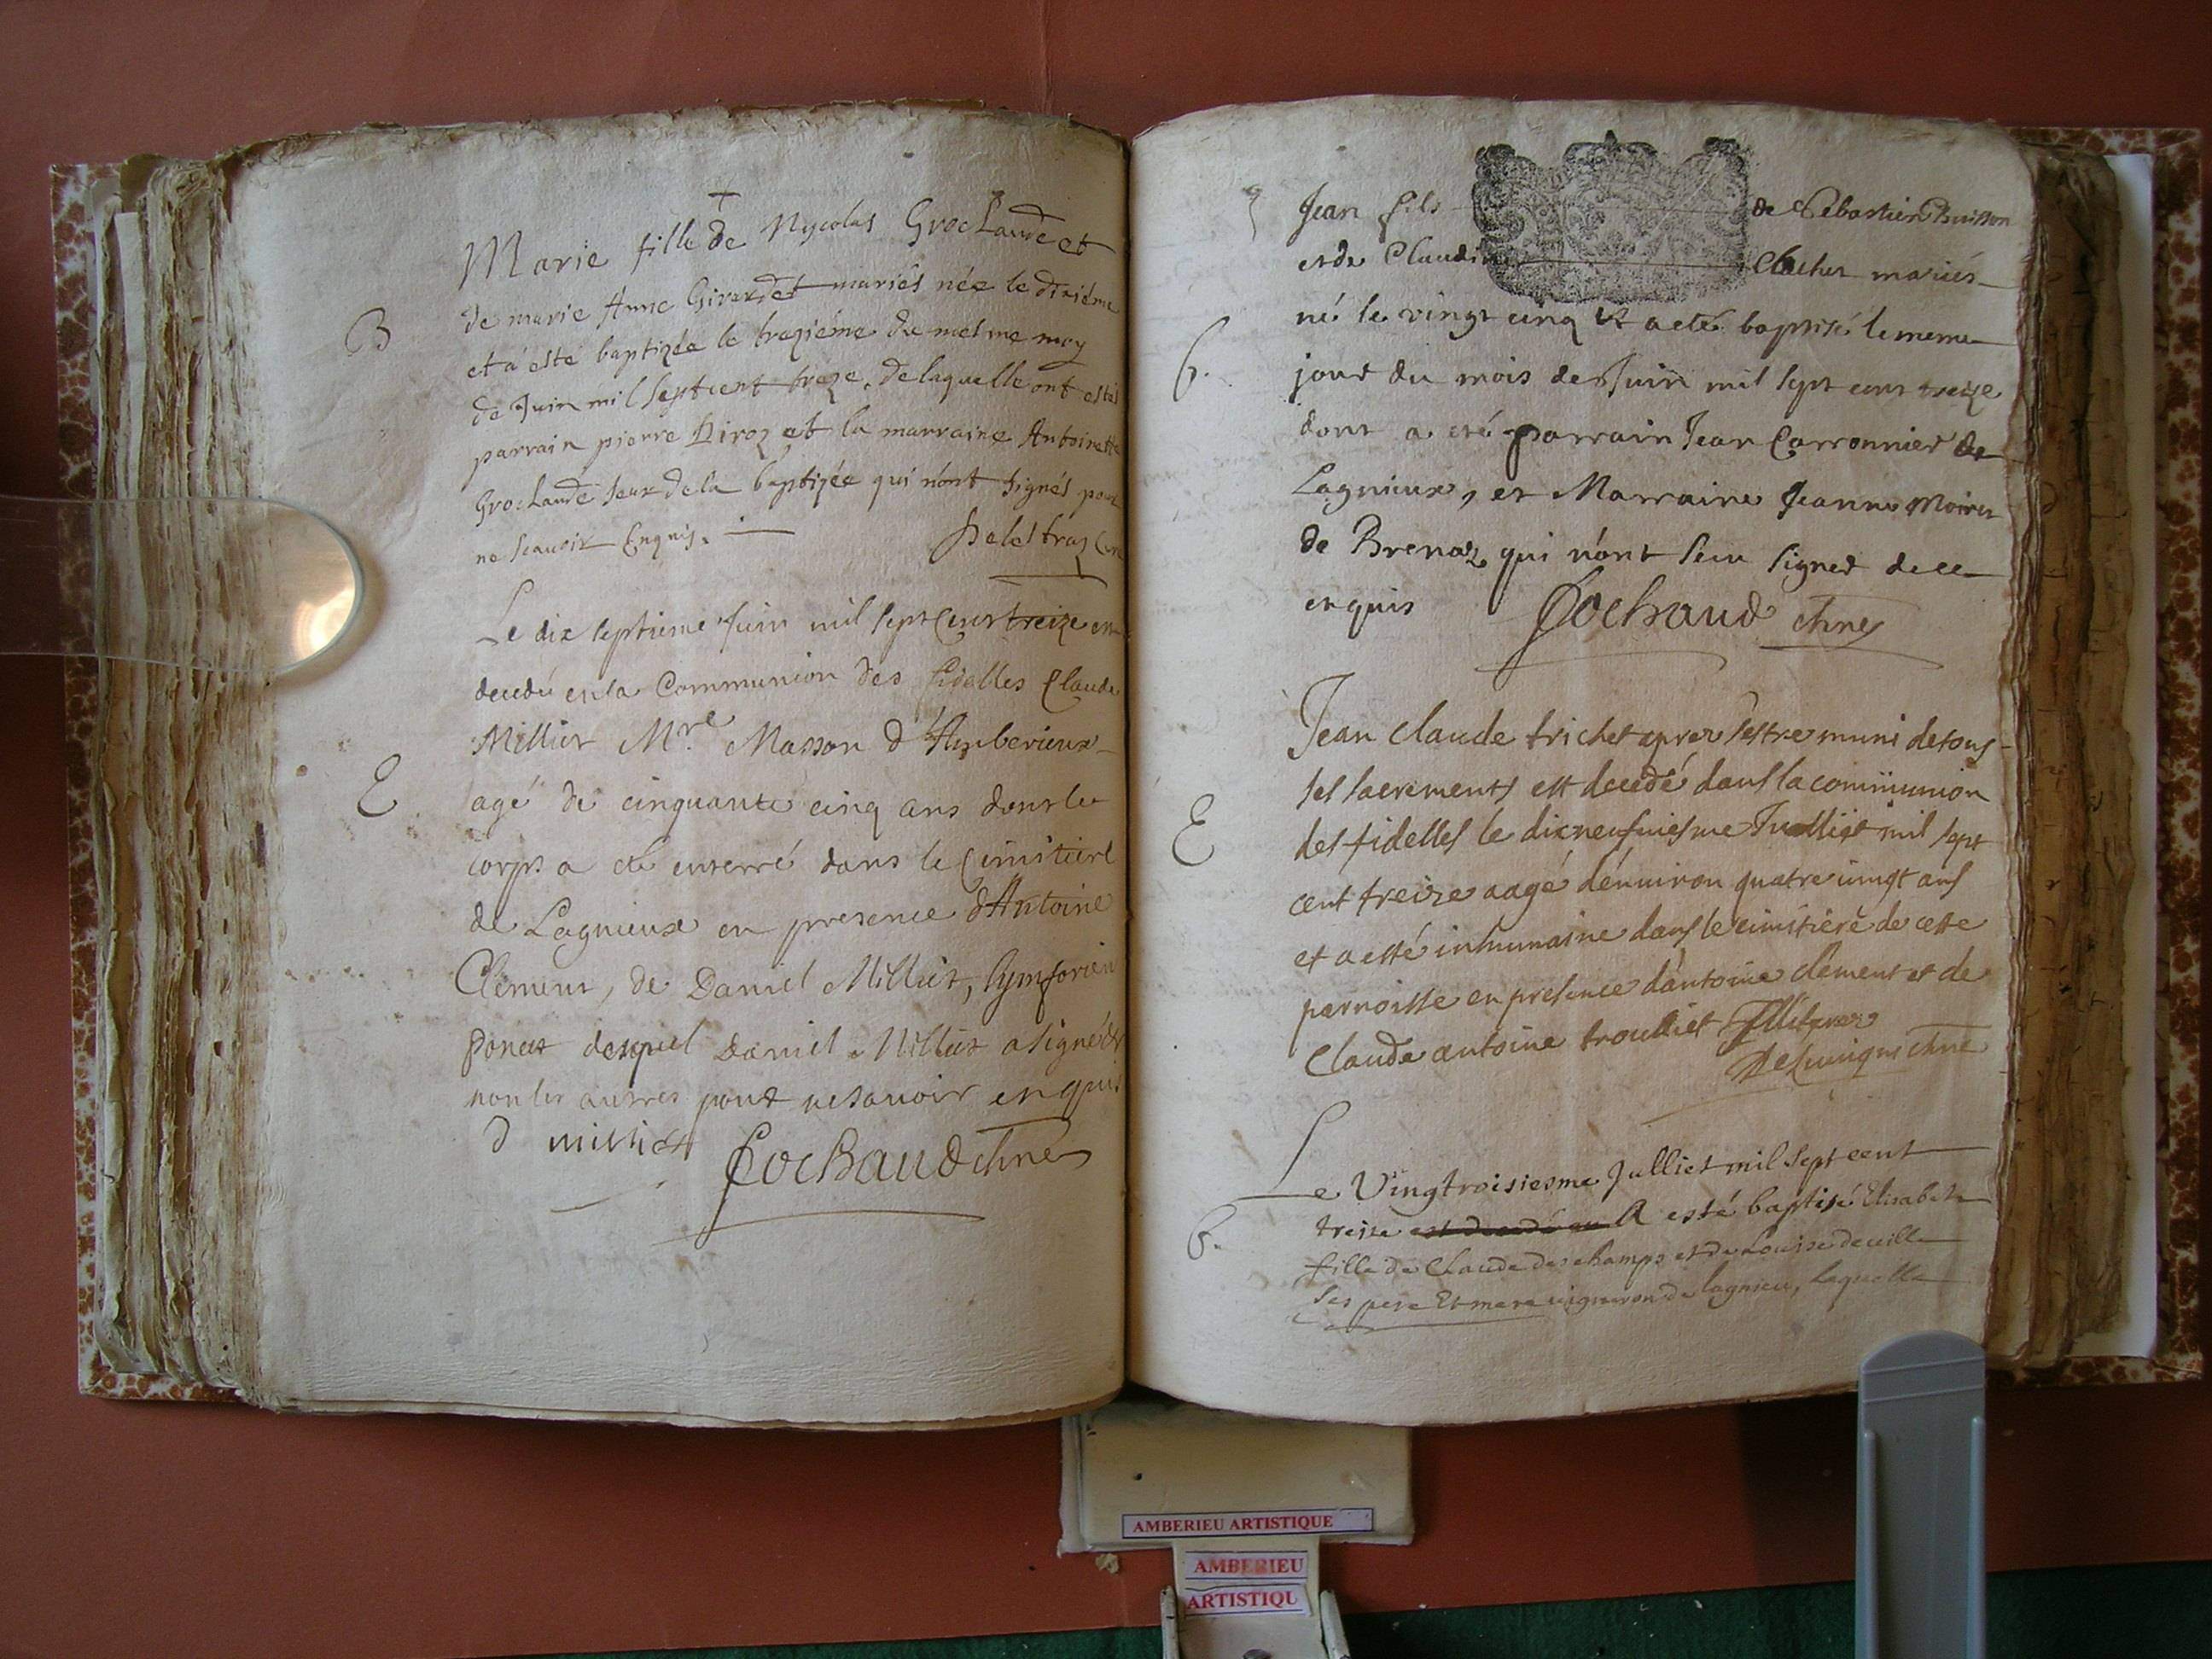 Marie fille de Nycolas Groclaude et
B
de marie Anne Girardet mariés née le dixiéme
et a esté baptizée le trezième du mesme moy
de Juin mil septcent trèze. de laquelle ont estés
parrain pierre et la marraine Antoinette
Groclaude seur de la baptizée qui n'ont signés pour
ne scauoir Enquis.
Le dix septieme Juin mil sept cens treize est
decedé en la Communion des fidelles Claude
Milliet Mre Masson d'Amberieux
E
agé de cinquante cinq ans dont le
corps a été enterré dans le Cimitiere
de Lagnieux en presence d'Antoine
Clement, de Daniel Milliet, Symforien
Ponet desquel Daniel Milliet a signé et
non les autres pour ne sauoir enquis
D milliet Cochaud chne
Jean fils de Sebastien Buisson
et de Claudine mariés
né le vingt cinq et a eté baptisé le meme
6.
jour du mois de Juin mil sept cens treize
dont a eté parrain Jean Carronnier de
Lagnieux, et Marraine Jeanne
de Brenaz qui n'ont sceu signer de ce
enquis Cochaud chne
Jean claude trichet apres s'estre muni de tous
ses sacrements est decedé dans la communion
E
des fidelles le dixneufuiesme Julliet mil sept
cent treize aagé d'enuiron quatre uingt ans
et a esté inhumainé dans le cimitiere de cette
parroisse en presence d'antoine clement et de
Claude antoine troulliet
chne
Le Vingtroisiesme Julliet mil sept cent
treize est decedé en A esté baptisé Elisabeth
6.
fille de Claude deschamps et de Louise deuille
ses pere Et mere uigneron de lagnieu, laquelle
AMBERIEU ARTISTIQUE
AMBERIEU
ARTISTIQU